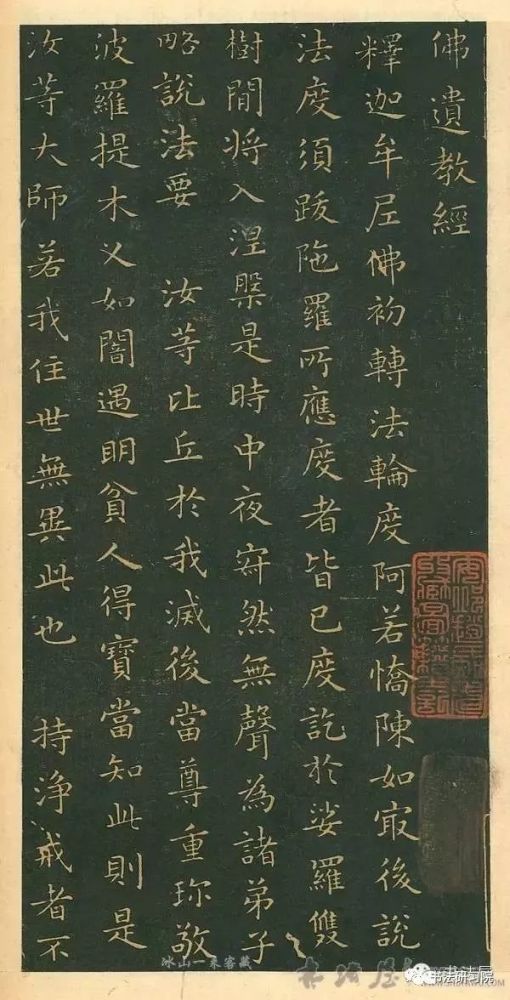 佛遺教經
釋迦牟尼佛初轉法輪度阿若憍陳如冣後說
法度須跋陁羅所應度者皆已度訖於娑羅雙
樹間將入涅槃是時中夜寂然無聲為諸弟子
略說法要　汝等比丘於我滅後當尊重珎敬
波羅提木叉如闇遇明貧人得寶當知此則是
汝等大師若我住世無異此也　持淨戒者不
冰山一禾客藏
书法屋